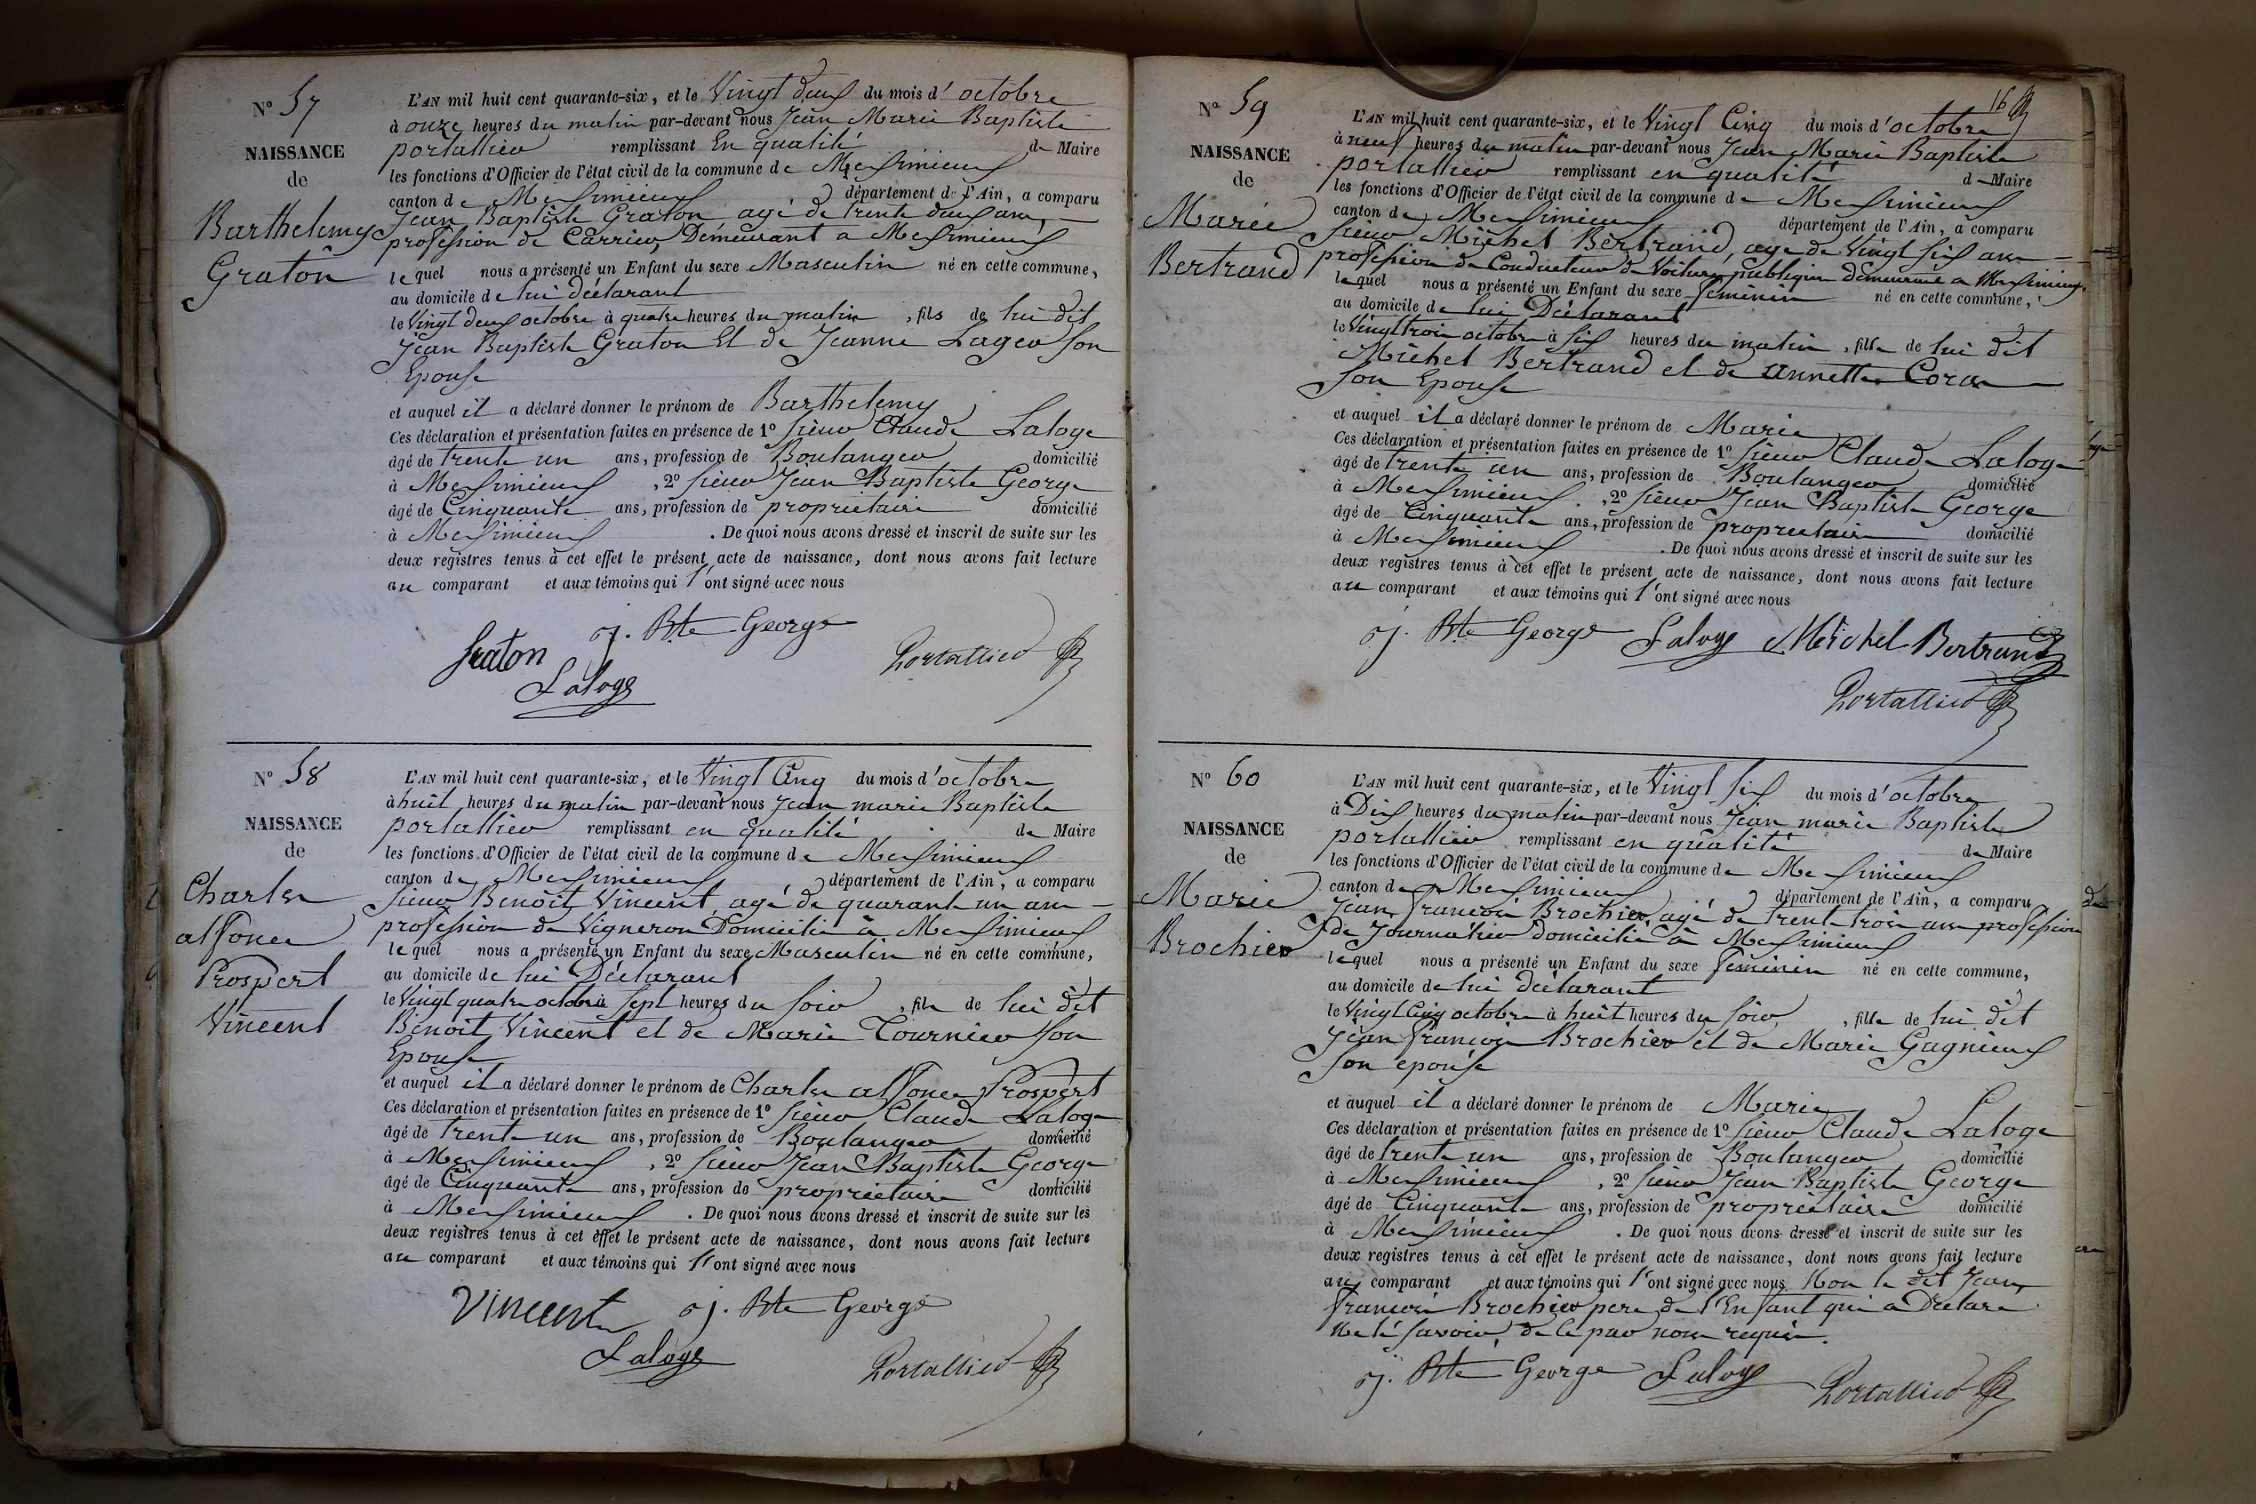 N° 57
NAISSANCE
de
Barthelemy
Graton
L'AN mil huit cent quarante-six, et le Vingt deux du mois d'octobre
à onze heures du matin par-devant nous Jean Marie Baptiste
portallier remplissant En qualité de Maire
les fonctions d'Officier de l'état civil de la commune de Messimieux
canton de Messimieux département de l'Ain, a comparu
Jean Baptiste Graton agé de trente deux ans,
profession de Carrier, Demeurant a Messimieux
lequel nous a présenté un Enfant du sexe Masculin né en cette commune,
au domicile de lui déclarant
le Vingt deux octobre à quatre heures du matin, fils de lui dit
Jean Baptiste Graton Et de Jeanne Lager son
Epouse
et auquel il a déclaré donner le prénom de Barthelemy
Ces déclaration et présentation faites en présence de 1° sieur Claude Laloge
âgé de trente un ans, profession de Boulanger domicilié
à Messimieux, 2° sieur Jean Baptiste George
âgé de Cinquante ans, profession de proprietaire domicilié
à Messimieux. De quoi nous avons dressé et inscrit de suite sur les
deux registres tenus à cet effet le présent acte de naissance, dont nous avons fait lecture
au comparant et aux témoins qui l'ont signé avec nous
Graton j. Bte George Portallier
Laloge
N° 58
NAISSANCE
de
Charles
alfonce
Prospert
Vincent
L'AN mil huit cent quarante-six, et le Vingt Cinq du mois d'octobre
à huit heures du matin par-devant nous Jean marie Baptiste
portallier remplissant en qualité de Maire
les fonctions d'Officier de l'état civil de la commune de Messimieux
canton de Messimieux département de l'Ain, a comparu
sieur Benoit Vincent, agé de quarante un ans
profession de Vigneron Domicilié à Messimieux
lequel nous a présenté un Enfant du sexe Masculin né en cette commune,
au domicile de lui Déclarant
le Vingt quatre octobre à sept heures du soir, fils de lui dit
Benoit Vincent et de Marie Tournier son
Epouse
et auquel il a déclaré donner le prénom de Charles alfonce Prospert
Ces déclaration et présentation faites en présence de 1° sieur Claude Laloge
âgé de trente un ans, profession de Boulanger domicilié
à Messimieux, 2° sieur Jean Baptiste George
âgé de Cinquante ans, profession de proprietaire domicilié
à Messimieux. De quoi nous avons dressé et inscrit de suite sur les
deux registres tenus à cet effet le présent acte de naissance, dont nous avons fait lecture
au comparant et aux témoins qui l'ont signé avec nous
Vincent j. Bte George
Laloge Portallier
16
N° 59
NAISSANCE
de
Marie
Bertrand
L'AN mil huit cent quarante-six, et le Vingt Cinq du mois d'octobre
à neuf heures du matin par-devant nous Jean Marie Baptiste
portallier remplissant en qualité de Maire
les fonctions d'Officier de l'état civil de la commune de Messimieux
canton de Messimieux département de l'Ain, a comparu
sieur Michel Bertrand, agé de Vingt six ans
profession de Conducteur de Voiture publique demeurant a Messimieux,
lequel nous a présenté un Enfant du sexe feminin né en cette commune,
au domicile de lui Déclarant
le Vingt trois octobre à six heures du matin, fille de lui dit
Michel Bertrand et de Annette Coras
son Epouse
et auquel il a déclaré donner le prénom de Marie
Ces déclaration et présentation faites en présence de 1° sieur Claude Laloge
âgé de trente un ans, profession de Boulanger domicilié
à Messimieux, 2° sieur Jean Baptiste George
âgé de Cinquante ans, profession de proprietaire domicilié
à Messimieux. De quoi nous avons dressé et inscrit de suite sur les
deux registres tenus à cet effet le présent acte de naissance, dont nous avons fait lecture
au comparant et aux témoins qui l'ont signé avec nous
j. Bte George Laloge Michel Bertrand
Portallier
N° 60
NAISSANCE
de
Marie
Brochier
L'AN mil huit cent quarante-six, et le Vingt six du mois d'octobre
à Dix heures du matin par-devant nous Jean marie Baptiste
portallier remplissant en qualité de Maire
les fonctions d'Officier de l'état civil de la commune de Messimieux
canton de Messimieux département de l'Ain, a comparu
Jean francois Brochier, agé de trente trois ans profession
de Journalier domicilié à Messimieux
lequel nous a présenté un Enfant du sexe feminin né en cette commune,
au domicile de lui déclarant
le Vingt Cinq octobre à huit heures du soir, fille de lui dit
Jean francois Brochier et de Marie Gagnieux
son epouse
et auquel il a déclaré donner le prénom de Marie
Ces déclaration et présentation faites en présence de 1° sieur Claude Laloge
âgé de trente un ans, profession de Boulanger domicilié
à Messimieux, 2° sieur Jean Baptiste George
âgé de Cinquante ans, profession de proprietaire domicilié
à Messimieux. De quoi nous avons dressé et inscrit de suite sur les
deux registres tenus à cet effet le présent acte de naissance, dont nous avons fait lecture
au comparant et aux témoins qui l'ont signé avec nous Non le dit Jean
francois Brochier pere de l'Enfant qui a Déclaré
ne le savoir, de ce par nous requis.
j. Bte George Laloge Portallier